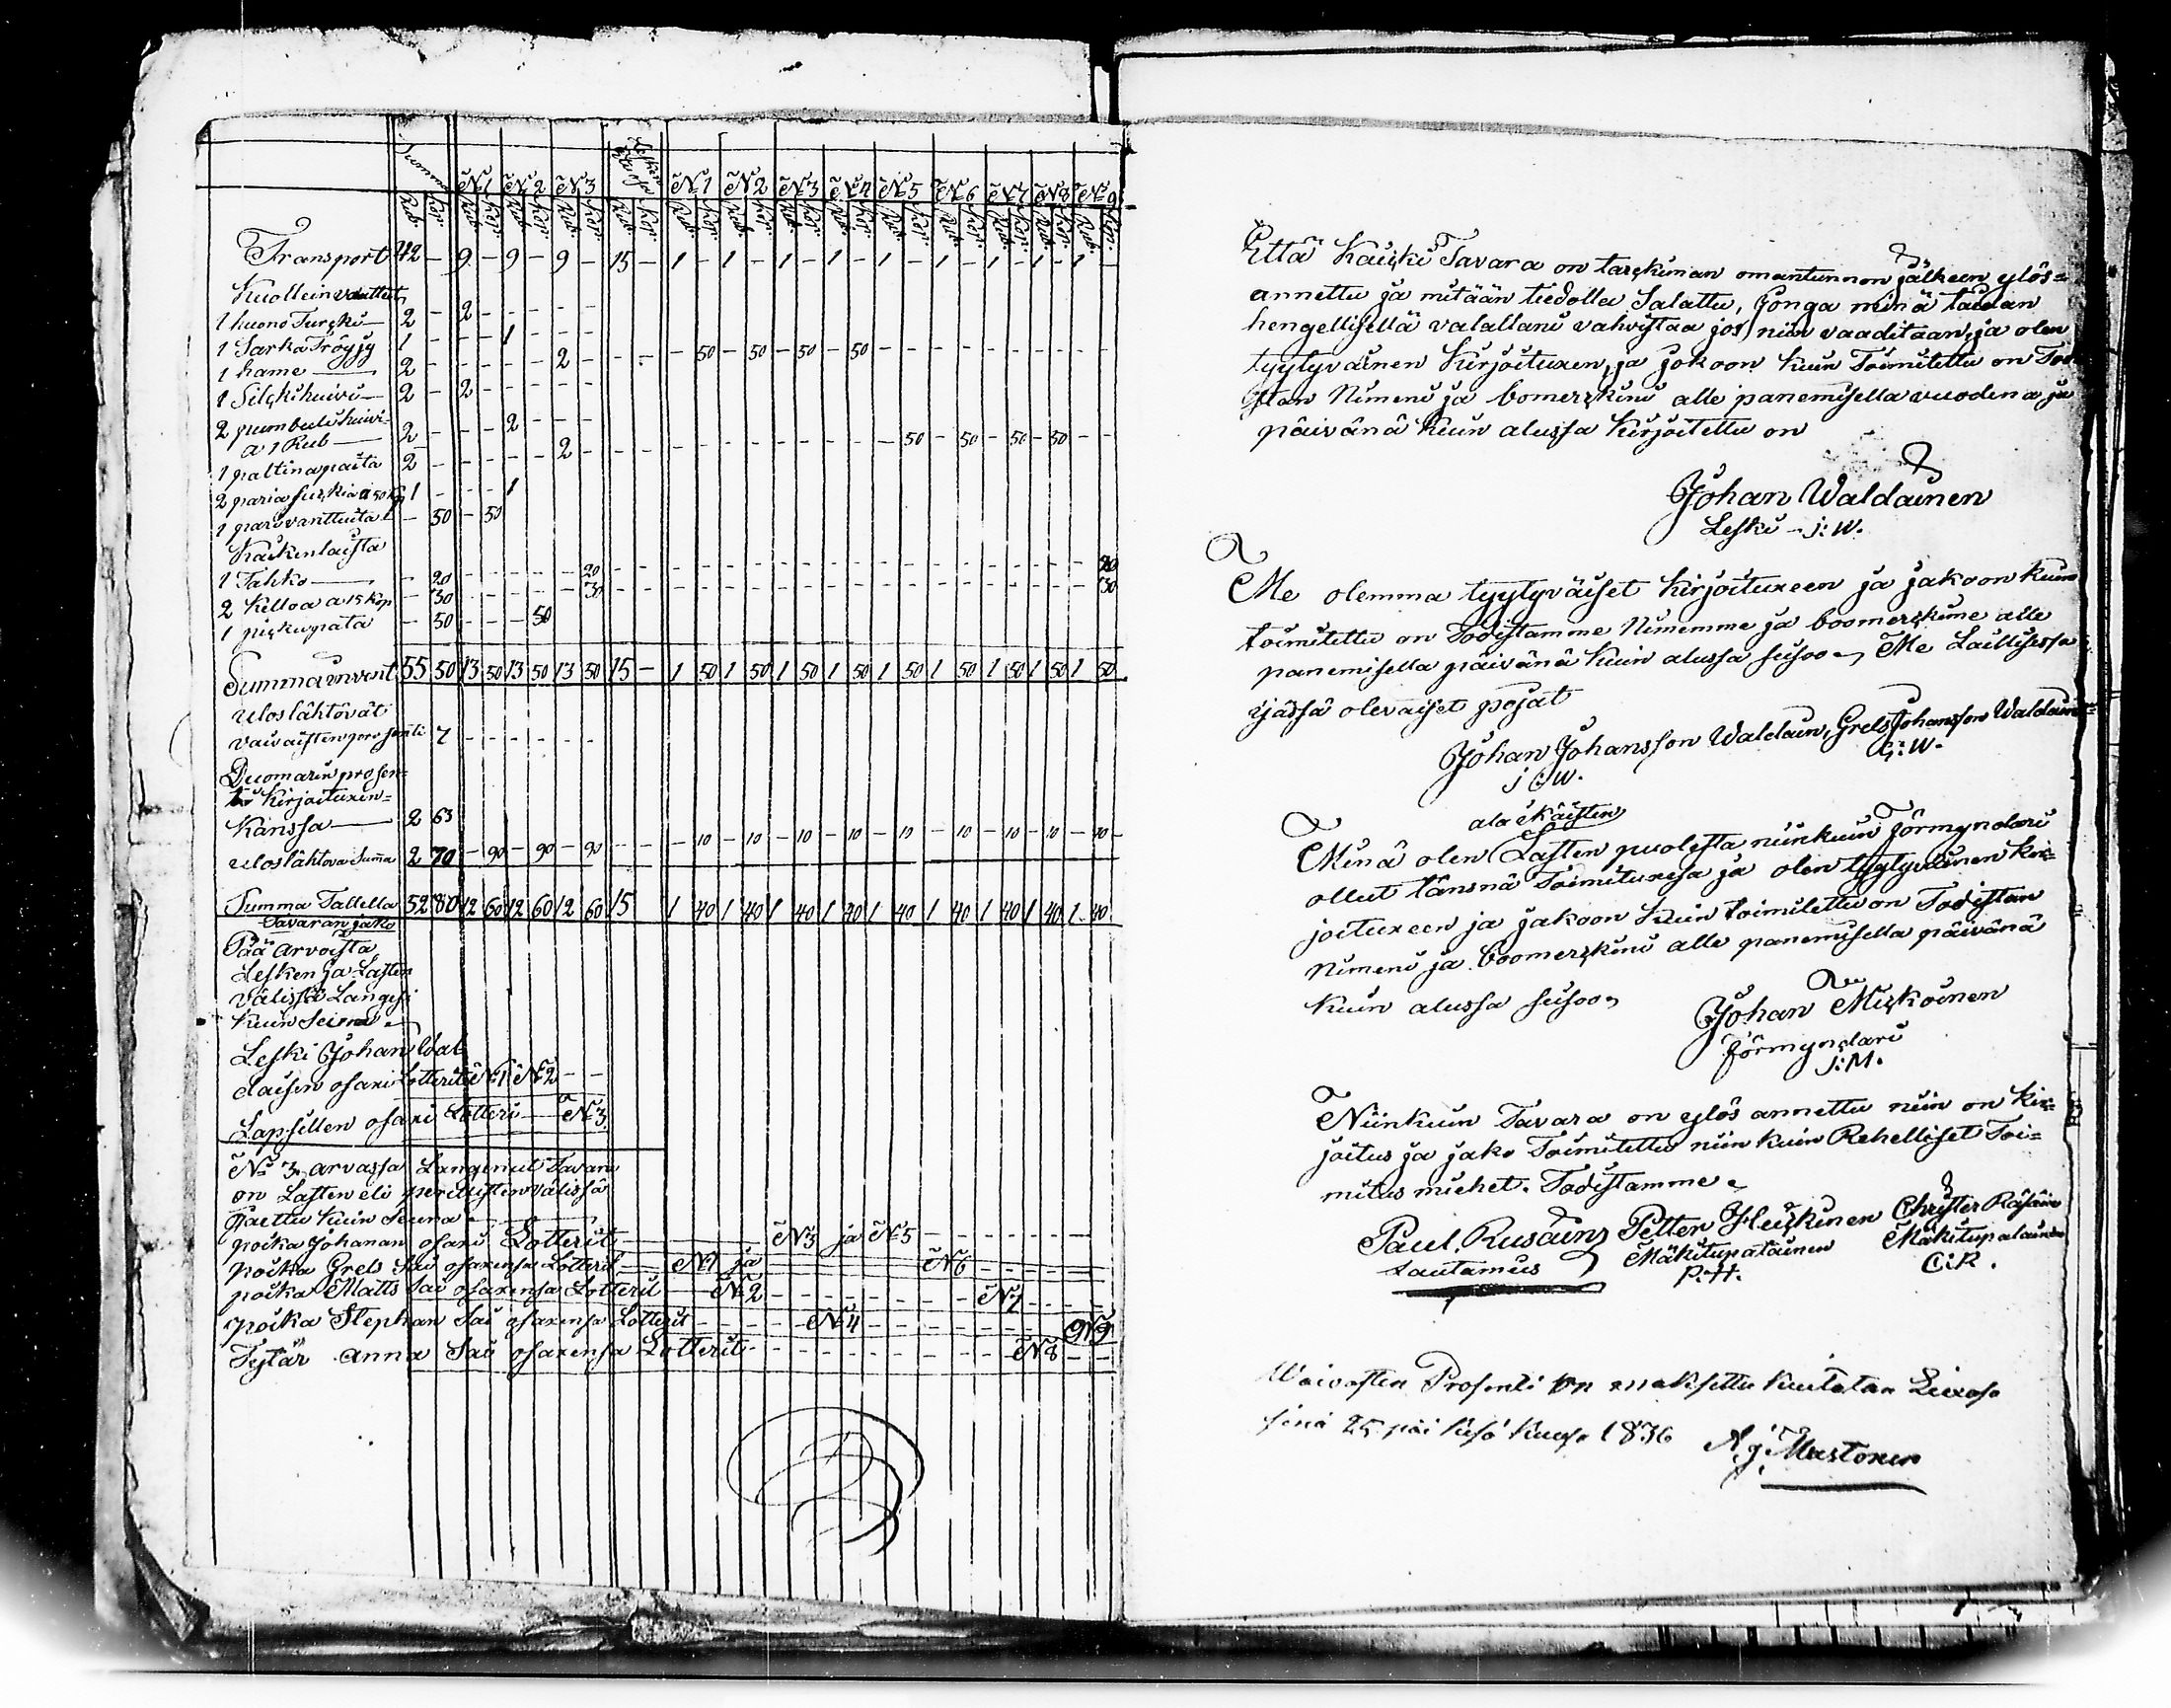 Summa Lesken Etu osa
N:1 N:2 N:3 N:1 N:2 N:3 N:4 N:5 N:6 N:7 N:8 N:9
Rub. Kop. Rub. Kop. Rub. Kop. Rub. Kop. Rub. Kop. Rub. Kop. Rub. Kop. Rub. Kop. Rub. Kop. Rub. Kop. Rub. Kop. Rub. Kop. Rub. Kop. Rub. Kop.
Transport 42 - 9 - 9 - 9 - 15 - 1 - 1 - 1 - 1 - 1 - 1 - 1 - 1 - 1 -
Kuollein vaattet
1 huono Turcki 2 - 2 - - - -
1 Sarka Tröyjy 1 - - - 1 - - -
1 hame 2 - - - - - 2 - - - - 50 - 50 - 50 - 50 - - - - - - - - - -
1 Silckihuivi 2 - 2 - - - -
2 pumbuli huivi
a 1 Rub 2 - - - 2 - - -
1 paltinapaita 2 - - - - - 2 - - - - - - - - - - - - 50 - 50 - 50 - 50 - -
2 paria suckia a 50 Kop 1 - - - 1
1 pari vanttuita - 50 - 50
Kaikenlaista
1 Tahko - 20 - - - - - 20 - - - - - - - - - - - - - - - - - - - 20
2 Kelloa a 15 Kop - 30 - - - - - 30 - - - - - - - - - - - - - - - - - - - 30
1 pickupata - 50 - - - 50
Summa invent 55 50 13 50 13 50 13 50 15 - 1 50 1 50 1 50 1 50 1 50 1 50 1 50 1 50 1 50
Uloslähtövät
vaivaisten prosentti 7 - - - - - -
Duomarin prosen=
ti Kirjoituxen=
Kanssa 2 63
Uloslähtövä Suma 2 70 - 90 - 90 - 90 - - - 10 - 10 - 10 - 10 - 10 - 10 - 10 - 10 - 10 -
Summa Tallella 52 80 12 60 12 60 12 60 15 1 40 1 40 1 40 1 40 1 40 1 40 1 40 1 40 1 40
Tavaran jako
Pää arvoista
Lesken ja Lasten
välissä Langesi
Kuin Seura
Leski Johan Wal
daisen osaxi Lotterit N:1 N:2 - -
Lapsillen osaxi Lotteri N:3
N:o 3 arvassa Langenut Tavara
on Lasten eli perillisten välissä
Jaettu Kuin Seura
poika Johanan osaxi Lotterit N:3 ja N:5
poika Grels Sai osaxensa Lotterit N:1 ja N:6
poika Matts Sai osaxensa Lotterit N:2 N:7
poika Stephan Sai osaxensa Lotterit N:4 N:9
Tytär Anna Sai osaxensa Lotterit N:8
Että Kaicki Tavara on tarckiman omantunnon jälkeen ylös=
annettu ja mitään tiedolla Salattu, Jonga minä taidan
hengellisellä valallani vahvistaa jos niin vaaditaan, ja olen
tyytyväinen Kirjoituxen, ja jokoon Kuin Toimitettu on Tod
istan Nimeni ja bomerckini alle panemisella vuodena ja
päivänä Kuin alussa Kirjoitettu on
Johan Waldainen
Leski - j: W.
Me olemma tyytyväiset Kirjoituxeen ja jakoon Kuin
toimitettu on Todistamme Nimemme ja boomerckime alle
panemisella päivänä Kuin alussa seisoo Me Laillisessa
ijässä olevaiset pojat
Johan Johansson Waldain, Grels Johansson Waldain=
j J: W. G: W.
ala ikäisten
Minä olen Lasten puolesta niinkuin Förmyndari
ollut tänsnä Toimituxesa ja olen tyytyväinen kir=
joituxeen ja jakoon Kuin toimitettu on Todistan
Nimeni ja boomerckini alle panemisella päivänä
Kuin alussa seisoo
Johan Mickoinen
förmyndari
J: M.
Niinkuin Tavara on ylös annettu niin on kir=
joitus ja jako Toimitettu niin kuin Rehelliset Toi=
mitus miehet. Todistamme
Paul. Rusaing Petter Heickinen Christer Räsäin
Lautamies Mäkitupalainen Mäkitupalainen
P: H. C: R.
Waivasten Prosenti on maksettu kuitatan Liexasa
sinä 25 päi kesä kuusa 1836 A. j. Mustonen